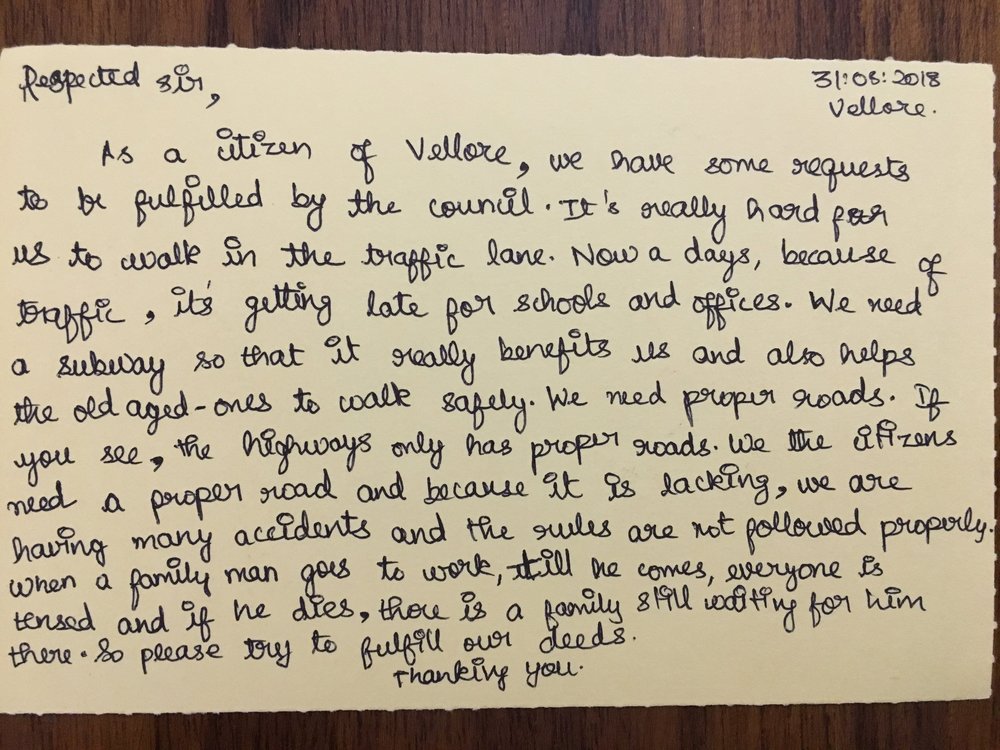 Respected sir,
31:08:2018
Vellore.
As a citizen of Vellore, we have some requests
to be fulfilled by the council. It's really hard for
us to walk in the traffic lane. Now a days, because of
traffic, it's getting late for schools and offices. We need
a subway so that it really benefits us and also helps
the old aged-ones to walk safely. We need proper roads. If
you see, the highways only has proper roads. We the citizens
need a proper road and because it is lacking, we are
having many accidents and the rules are not followed properly.
When a family man goes to work, till he comes, everyone is
tensed and if he dies, there is a family still waiting for him
there. So please try to fulfill our deeds.
Thanking you.